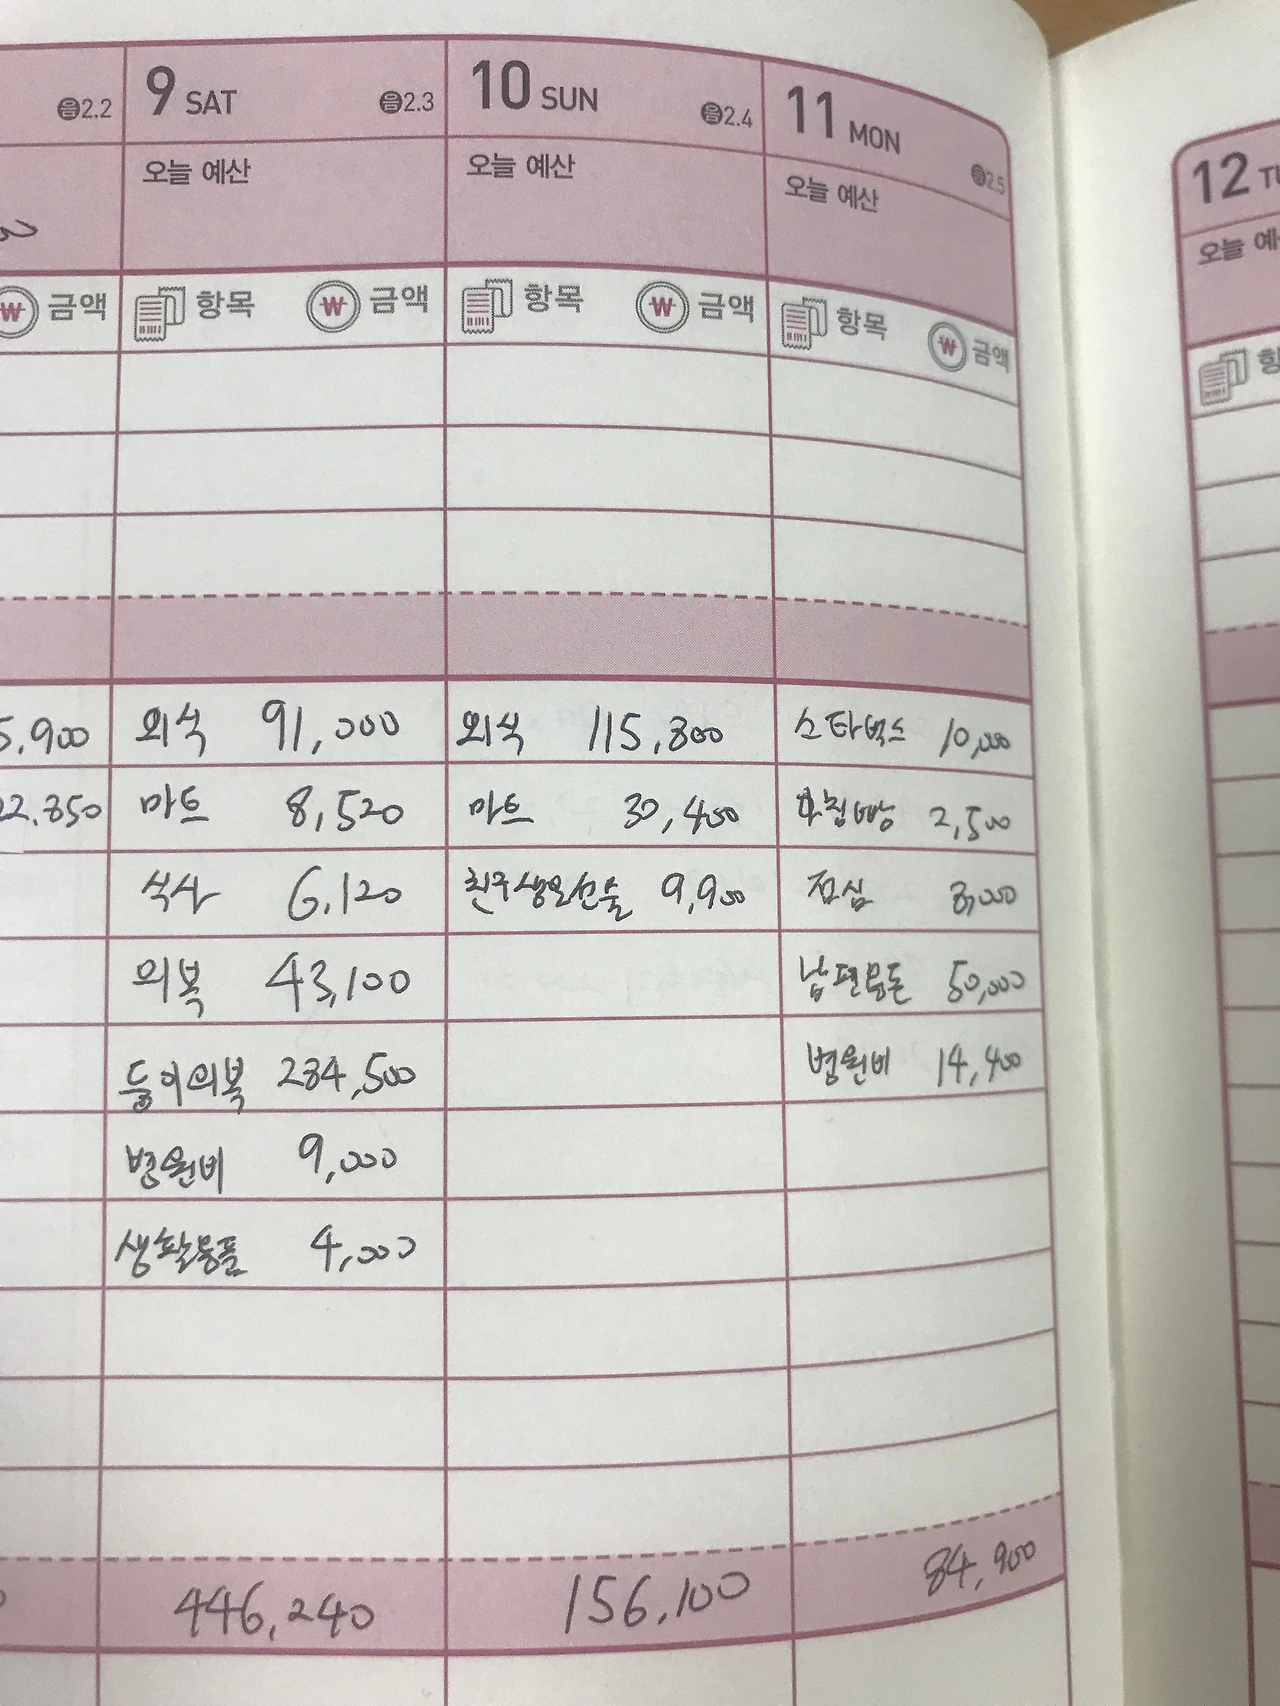 음2.2 9 SAT 음2.3 10 SUN 음2.4 11 MON 음2.5 12
오늘 예산 오늘 예산 오늘 예산 오늘
금액 항목 금액 항목 금액 항목 금액
5,900 외식 91,000 외식 115,800 스타벅스 10,000
22.850 마트 8,520 마트 30,400 아침빵 2,500
식사 6,120 친구생일선물 9,900 점심 8,000
의복 43,100 남편용돈 50,000
둥이의복 284,500 병원비 14,400
병원비 9,000
생활용품 4,000
446,240 156,100 84,900